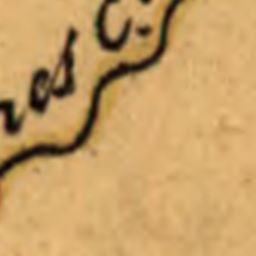 res C.